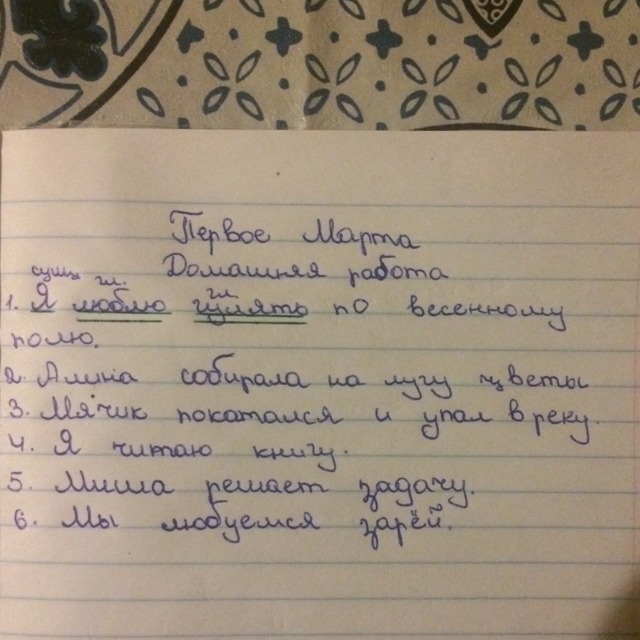 Первое Марта
Домашняя работа
сущ. гл. гл.
1. Я люблю гулять по весеннему
полю.
2. Алина собирала на лугу цветы
3. Мячик покатался и упал в реку.
4. Я читаю книгу.
5. Миша решает задачу.
6. Мы любуемся зарёй.